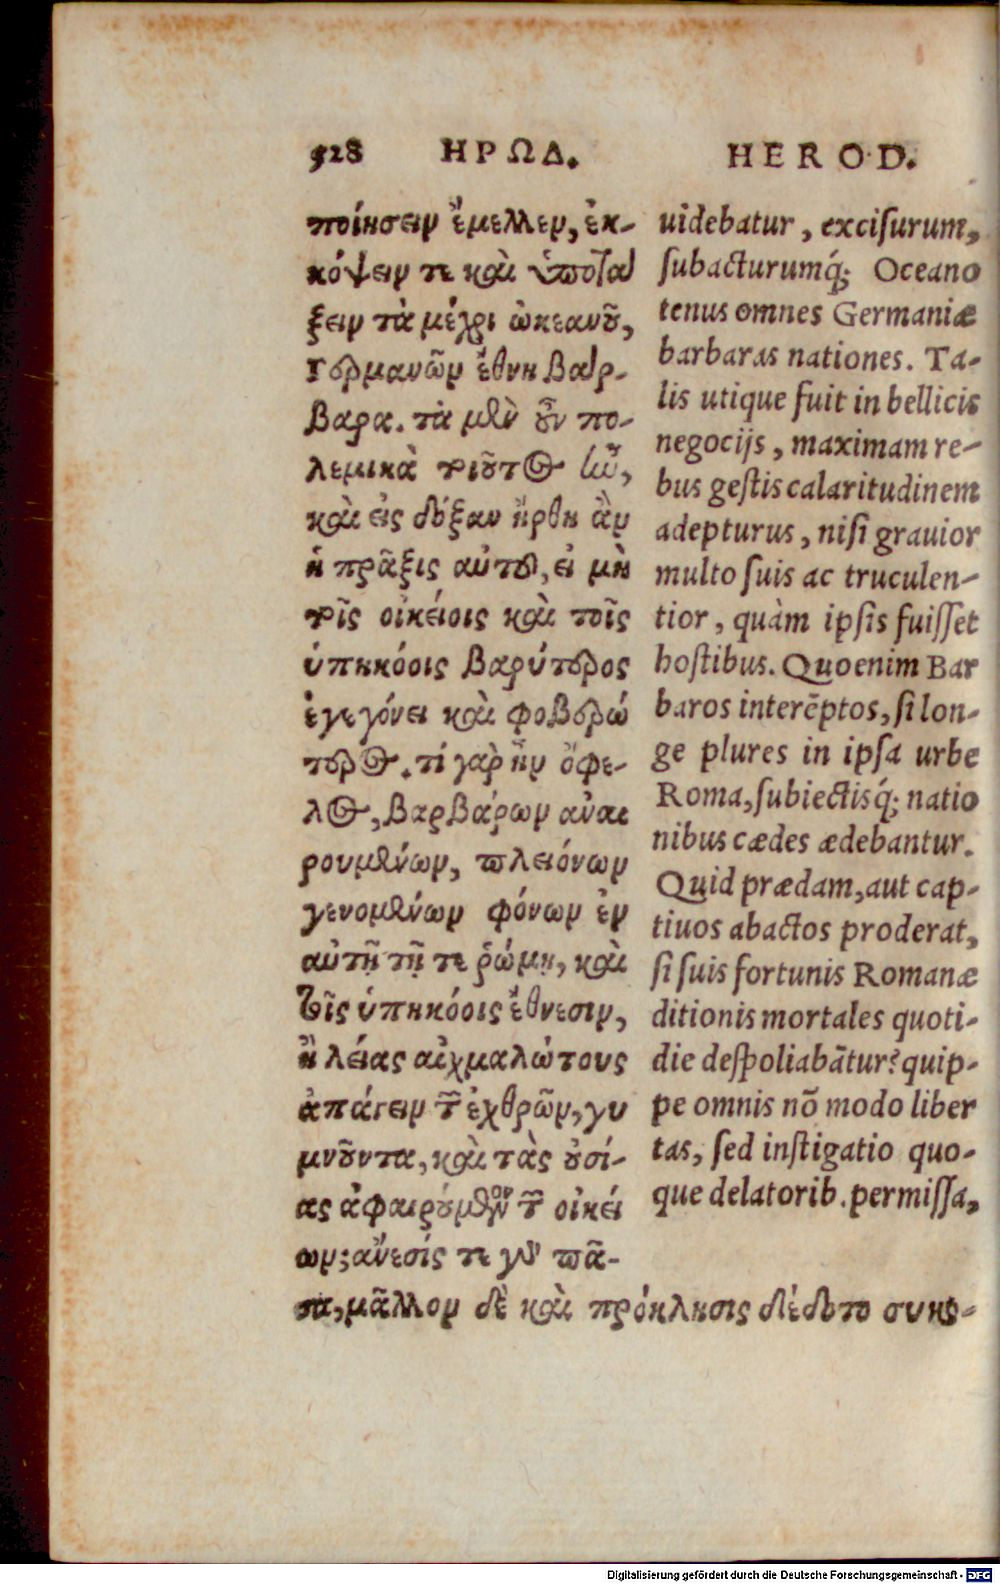 528 ΗΡΩΔ.
ποίησειν ἔμελλεν, ἐκ-
κόψειν τε καὶ ὑποτα
ξειν τὰ μέχρι ὠκεανοῦ,
Γερμανῶν ἔθνη βαρ-
βαρα. τὰ μὲν οὖν πο-
λεμικὰ τοιοῦτος ἦν,
καὶ εἰς δόξαν ἤρθη ἂν
ἡ πρᾶξις αὐτοῦ, εἰ μὴ
τοῖς οἰκείοις καὶ τοῖς
ὑπηκόοις βαρύτερος
ἐγεγόνει καὶ φοβερώ
τερος. τί γὰρ ἦν ὄφε-
λος, βαρβάρων ἀναι
ρουμένων, πλειόνων
γενομένων φόνων ἐν
αὐτῇ τῇ τε ῥώμῃ, καὶ
τοῖς ὑπηκόοις ἔθνεσιν,
ἢ λείας αἰχμαλώτους
ἀπάγειν τῶν ἐχθρῶν, γυ
μνοῦντα, καὶ τὰς οὐσί-
ας ἀφαιρούμενον τῶν οἰκεί
ων; ἄνεσίς τε γὰρ πᾶ-
σα, μᾶλλον δὲ καὶ πρόκλησις δέδοτο συκο-
HEROD.
uidebatur, exciſurum,
ſubacturumq́; Oceano
tenus omnes Germaniæ
barbaras nationes. Ta-
lis utique fuit in bellicis
negocijs, maximam re-
bus geſtis calaritudinem
adepturus, niſi grauior
multo ſuis ac truculen-
tior, quàm ipſis fuiſſet
hoſtibus. Quo enim Bar
baros interẽptos, ſi lon-
ge plures in ipſa urbe
Roma, ſubiectisq́; natio
nibus cædes ædebantur.
Quid prædam, aut cap-
tiuos abactos proderat,
ſi ſuis fortunis Romanæ
ditionis mortales quoti-
die deſpoliabãtur? quip-
pe omnis nõ modo liber
tas, ſed inſtigatio quo-
que delatorib. permiſſa,
Digitalisierung gefördert durch die Deutsche Forschungsgemeinschaft - DFG